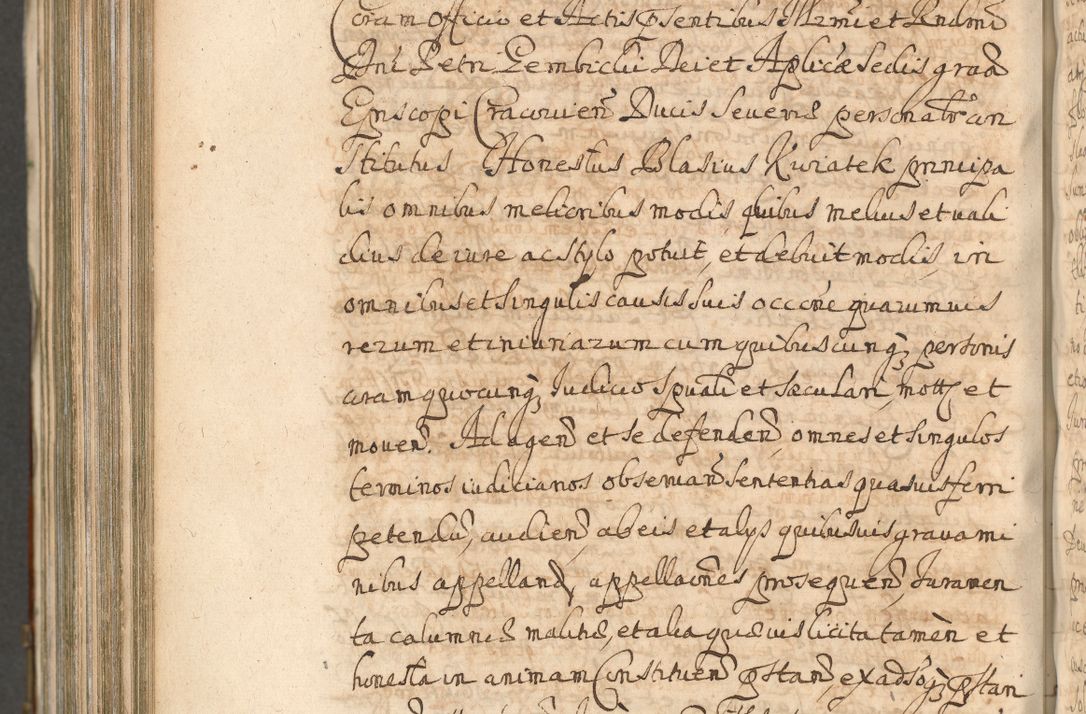 Coram Officio et Actis pn̄sentibus Illrmi et Rndmi
Dni Petri Gembicki Dei et Aplicæ Sedis graā
Episcopi Cracovien̄ Ducis Severiæ personalr con
stitutus Honestus Blasius Kwiatek principa
lis omnibus melioribus modis, quibus melius et vali
dius de iure ac stylo potuit, et debuit modis, in
omnibus et singulis causis suis occōne quarumvis
rerum et iniuriarum cum quibuscunq; personis
coram quocunq; Iudicio Spuali et sæculari, motis et
moven̄. Ad agen̄ et se defenden̄ omnes et singulos
terminos iudiciarios observan̄ sententias quasvis ferri
petendū, audien̄, ab eis et alys quibusvis gravami
nibus appelland, appellaōnes prosequen̄, Iuramen
ta calumniæ malitiæ, et alia quævis licita tamen et
honesta in animam Constituen̄ pstan̄, et ad sōq; pstari